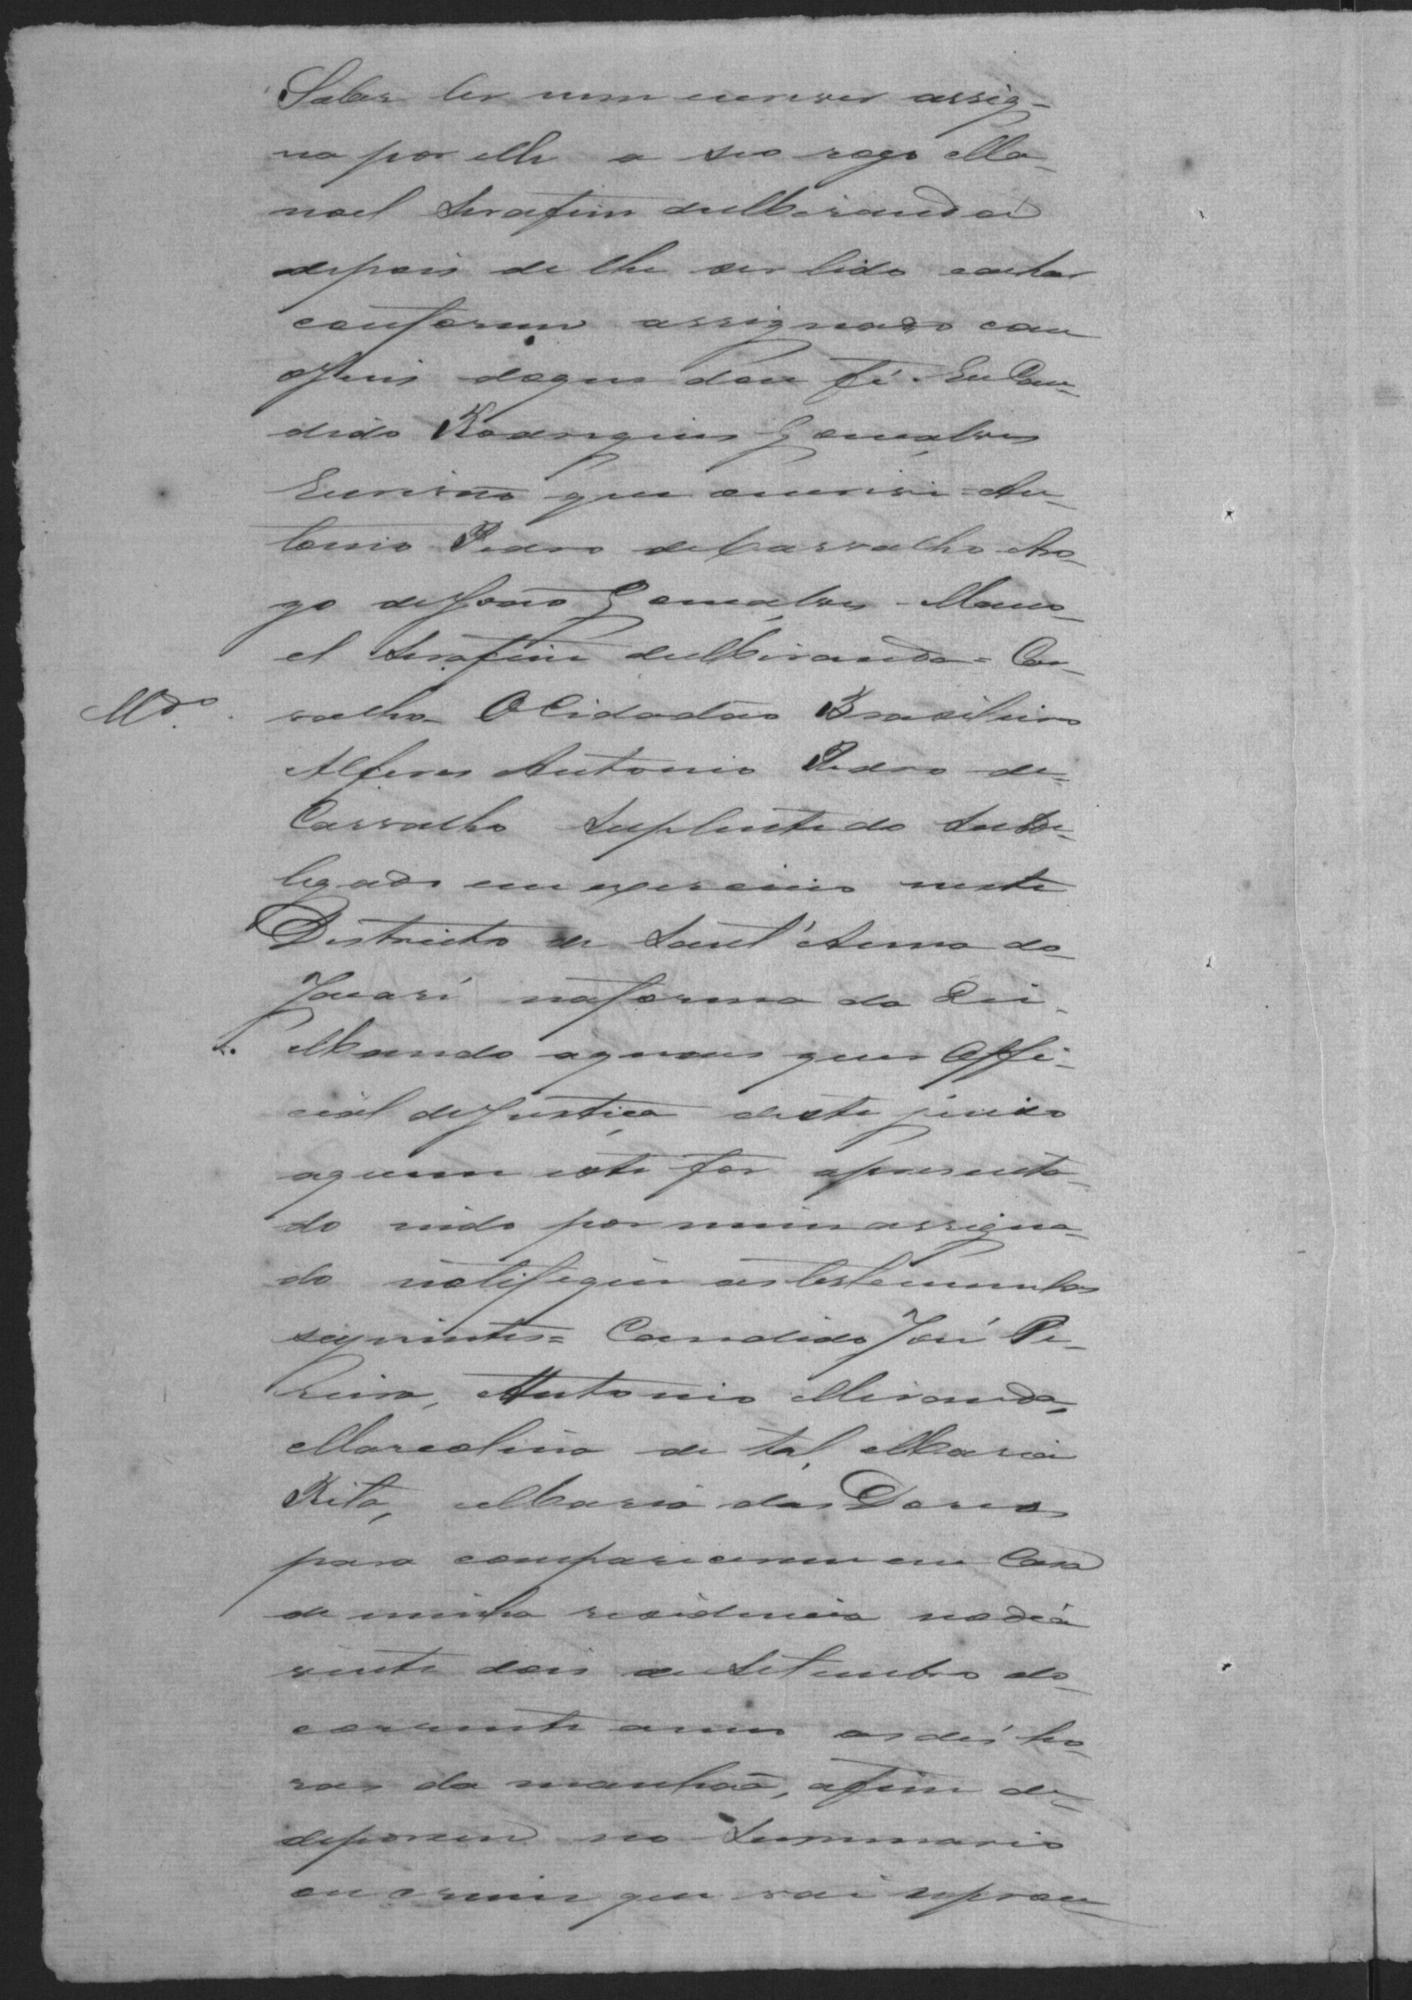 Saber ler nem escrever assig-
na por elle a seo rogo Ma-
noel Serafim de Miranda
depois de lhe ser lido e achar
conforme assignado com
o Juis do que dou fé. Eu Can-
dido Rodrigues Gonçalves
Escrivão que escrivi = An-
tonio Pedro de Carvalho Aro-
go de João Gonçalves = Mano-
el Serafim de Miranda = Car-
valho O Cidadão Brasileiro
Mdo.
Alferes Antonio Pedro de
Carvalho Suplente do Subde-
legado em exercicio neste
Districto de Sant'Anna do
na forma da Lei.
Mando a qual quer Offi-
cial de Justiça deste juiso
a quem este for apresenta-
do indo por mim assigna-
do notifique as testemunhas
seguintes = Candido José Pe-
reira, Antonio Miranda,
Marcolina de tal, Maria
Rita, Maria das Dores
para comparecerem em Casa
de minha residencia no dia
vinte dois de Setembro do
corrente anno as dés ho-
ras da manhaã, afim de
deporem no Summario
em crime que vai